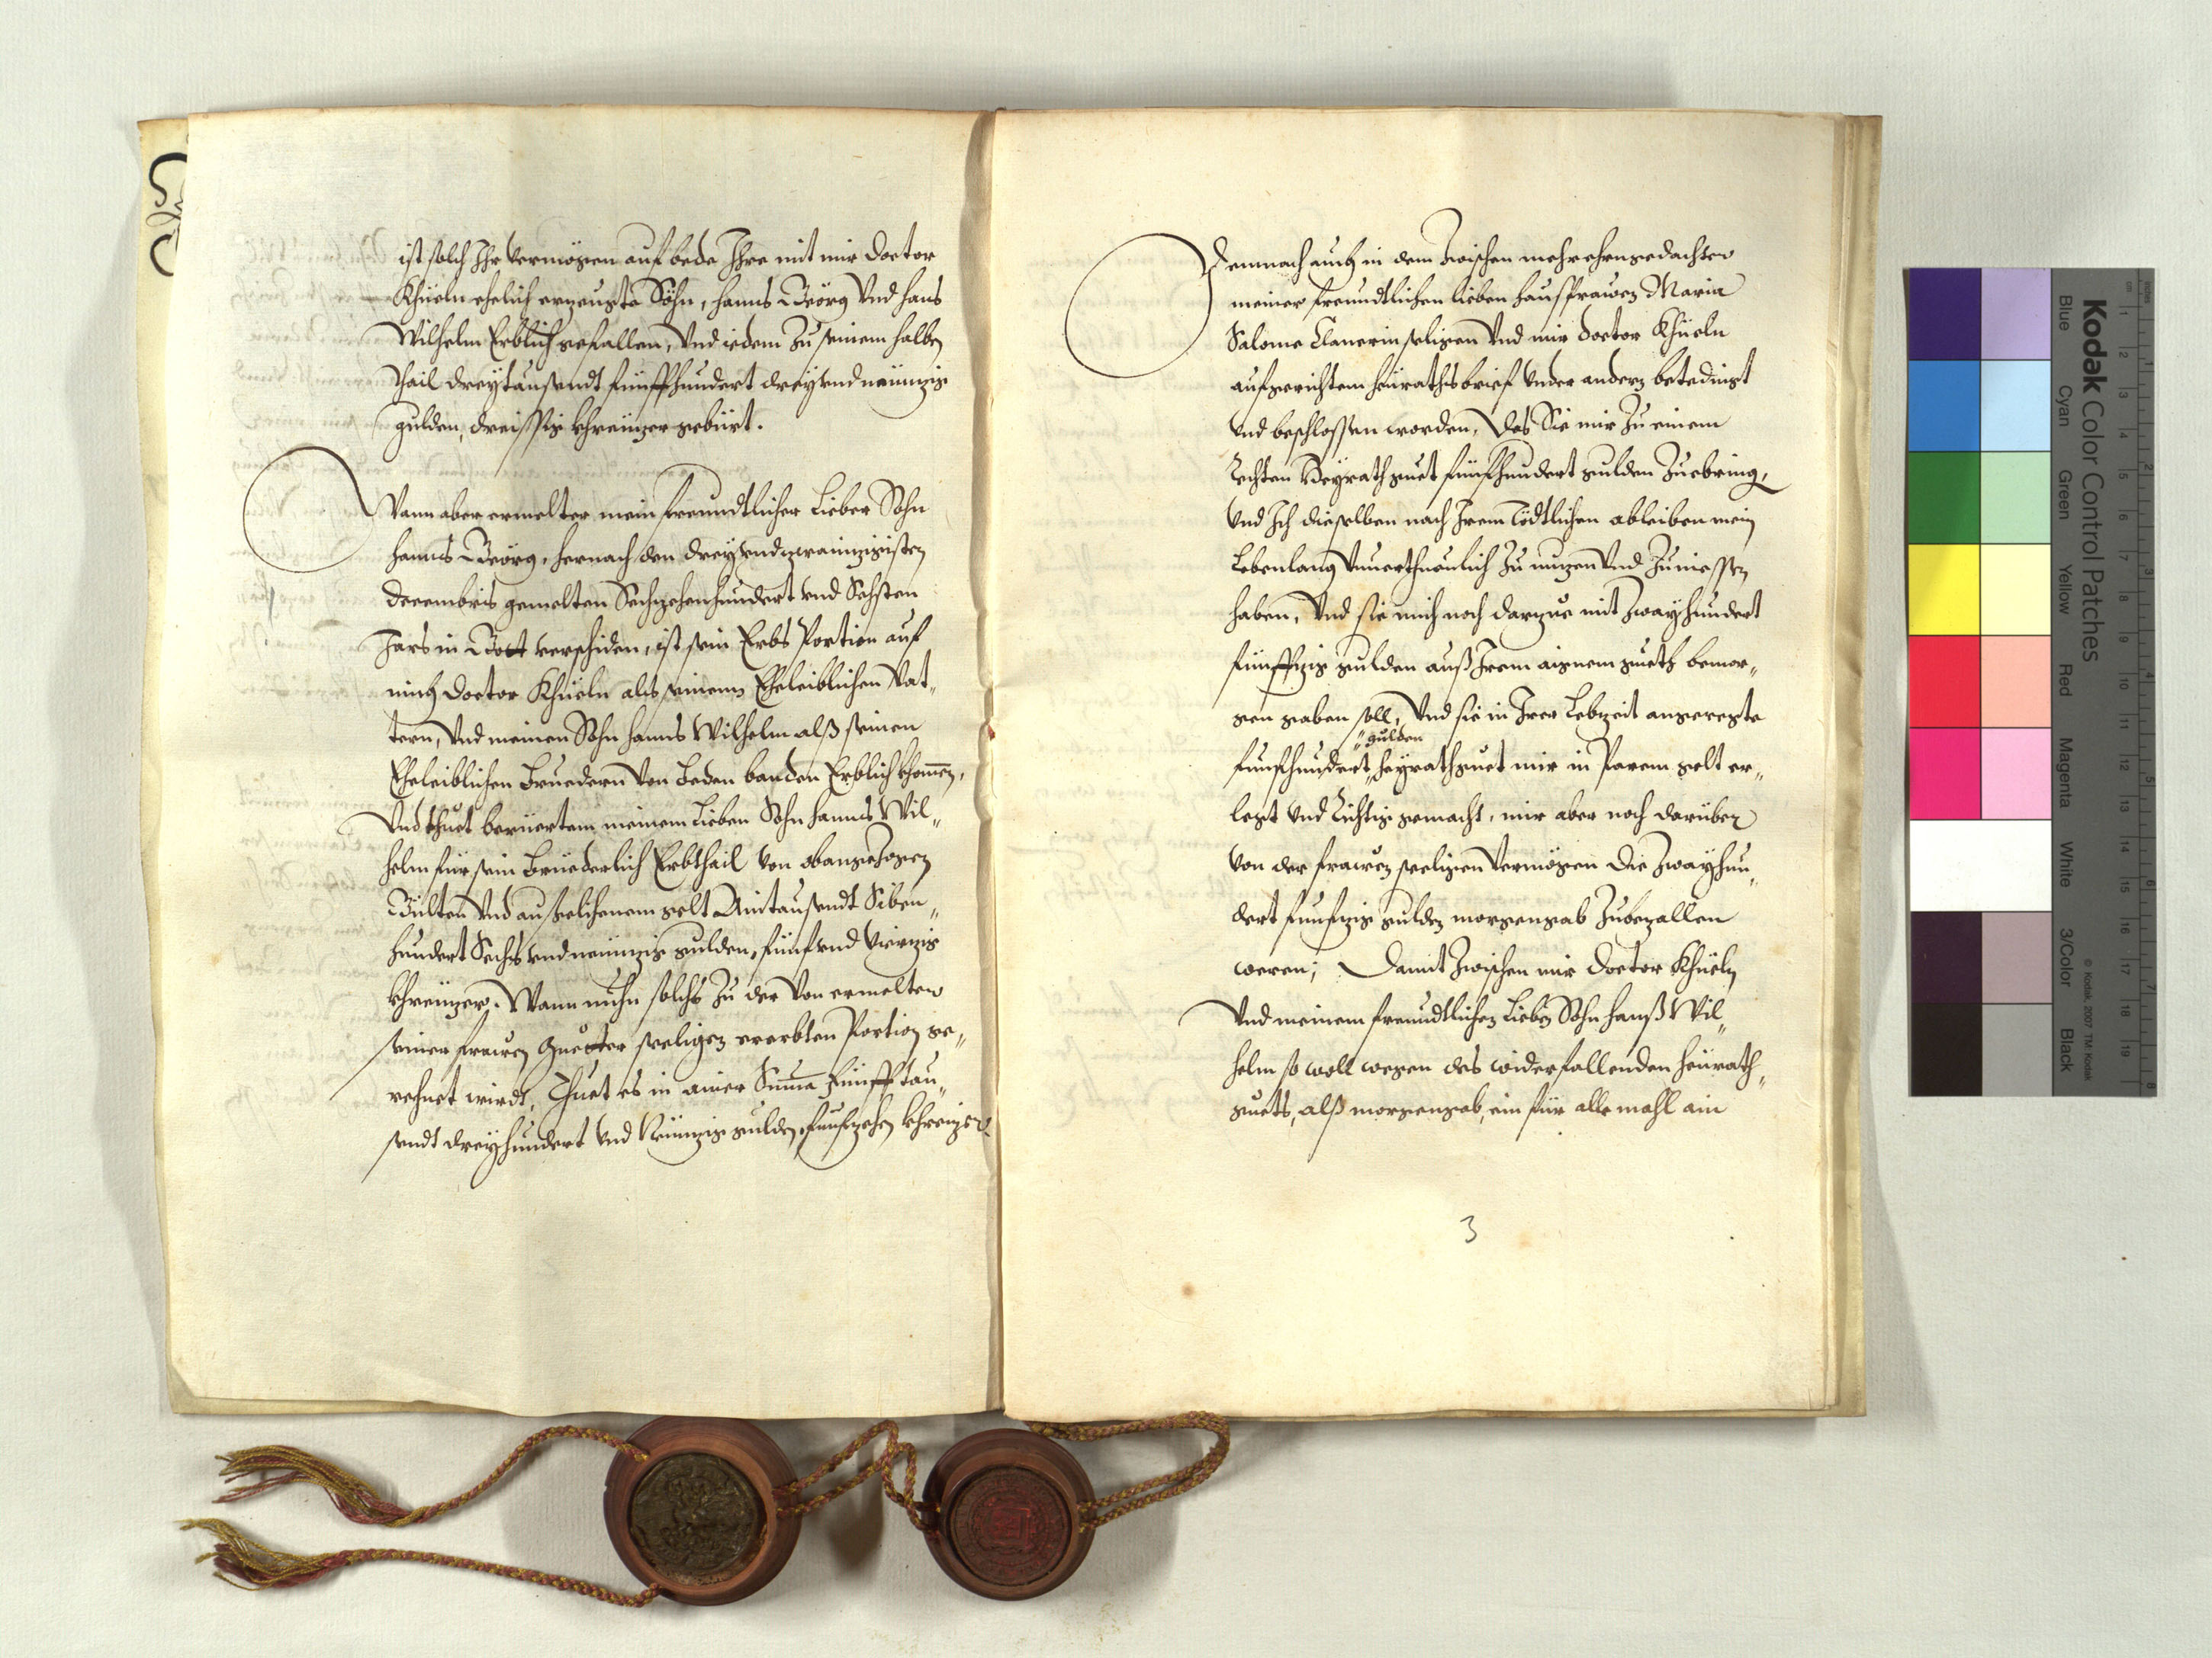 ist solch Ihr vermögen auf bede Ihre mit mir Doctor
Khüeln ehelich erzeugte Söhn, Hanns Geörg vnd Hans
Wilhelm Erblich gefallen, vnd iedem zu seinem halben
thail dreytausendt fünffhundert dreyvndneünzig
gulden, dreissig khreüzer gebürt.
Wann aber ermelter mein freundtlicher lieber Sohn
Hanns Geörg, hernach den dreyvndzwainzigisten
Decembris gemelten Sechzehenhundert vnd Sechsten
Jars in Gott verschiden, ist sein Erbs Portion auf
mich Doctor Khüeln als seinem Eheleiblichen Vat„
tern, vnd meinen Sohn Hanns Wilhelm alß seinen
Eheleiblichen Bruedern von beden banden Erblich khommen,
vnd thuet berüertem meinem lieben Sohn Hanns Wil„
helm für sein Brüederlich Erbthail von obangezognen
Gülten vnd außgelichenem gelt Aintausendt Siben„
hundert Sechsvndneünzig gulden, fünfvnd vierzig
khreüzer. Wann nuhn solchs zu der von ermelter
seiner frawen Muetter seeligen ererbten Portion ge„
rechnet wirdt, Thuet es in ainer Summa Fünfftau„
sendt dreyhundert vnd Neünzig gulden, funfzehen khreizer.
Demnach auch in dem zwischen mehrehrngedachter
meiner freundtlichen lieben Hausfrawen Maria
Salome Clanerin seligen vnd mir Doctor Khüeln
aufgerichtem heürathsbrief vnder andern betedingt
vnd beschlossen worden, das Sie mir zu einem
Rechten Heyrathguet fünfhundert gulden zuebring,
vnd Ich dieselben nach Irem tödtlichen ableiben mein
Lebenlang vnuerthuenlich zu nuzen vnd zuniessen
haben, vnd sie mich noch darzue mit zwayhundert
fünffzig gulden auß Irem aignem gueth bemor„
gen gaben soll, vnd sie in Irer Lebzeit angeregte
„gulden
funfhundert„ heyrathguet mir in Parem gelt er„
legt vnd Richtig gemacht, mir aber noch darüber
von der frawen seeligen vermögen die zwayhun„
dert funfzig gulden morgengab zubezallen
weren; Damit zwischen mir Doctor Khüeln
vnd meinem freundtlichen lieben Sohn Hanß Wil„
helm so woll wegen des widerfallenden heürath„
guets, alß morgengab, ein für alle mahl ain
3
Kodak Color Control Patches
Blue Cyan Green Yellow Red Magenta White 3/Color Black
© Kodak, 2007 TM: Kodak
inches 1 2 3 4 5 6 7 8
cm 1 2 3 4 5 6 7 8 9 10 11 12 13 14 15 16 17 18 19